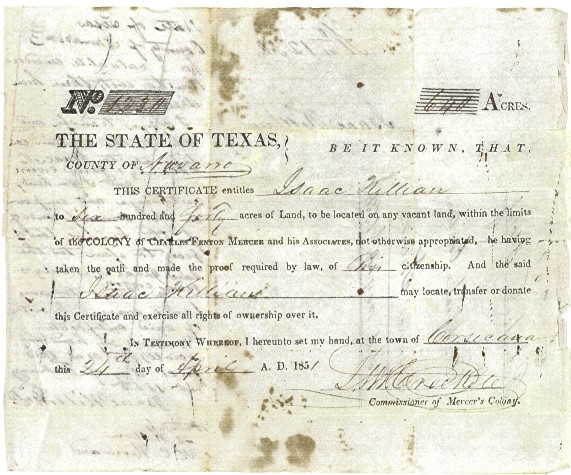 No. 640 ACRES.
THE STATE OF TEXAS,
COUNTY OF Navarro
BE IT KNOWN, THAT,
THIS CERTIFICATE entitles Isaac Killian
to Six hundred and forty acres of Land, to be located on any vacant land, within the limits
of the COLONY of CHARLES FENTON MERCER and his ASSOCIATES, not otherwise appropriated, he having
taken the oath and made the proof required by law, of his citizenship. And the said
Isaac Killian may locate, transfer or donate
this Certificate and exercise all rights of ownership over it.
IN TESTIMONY WHEREOF, I hereunto set my hand, at the town of Corsicana
this 24th day of April A. D. 1851
Commissioner of Mercer's Colony.